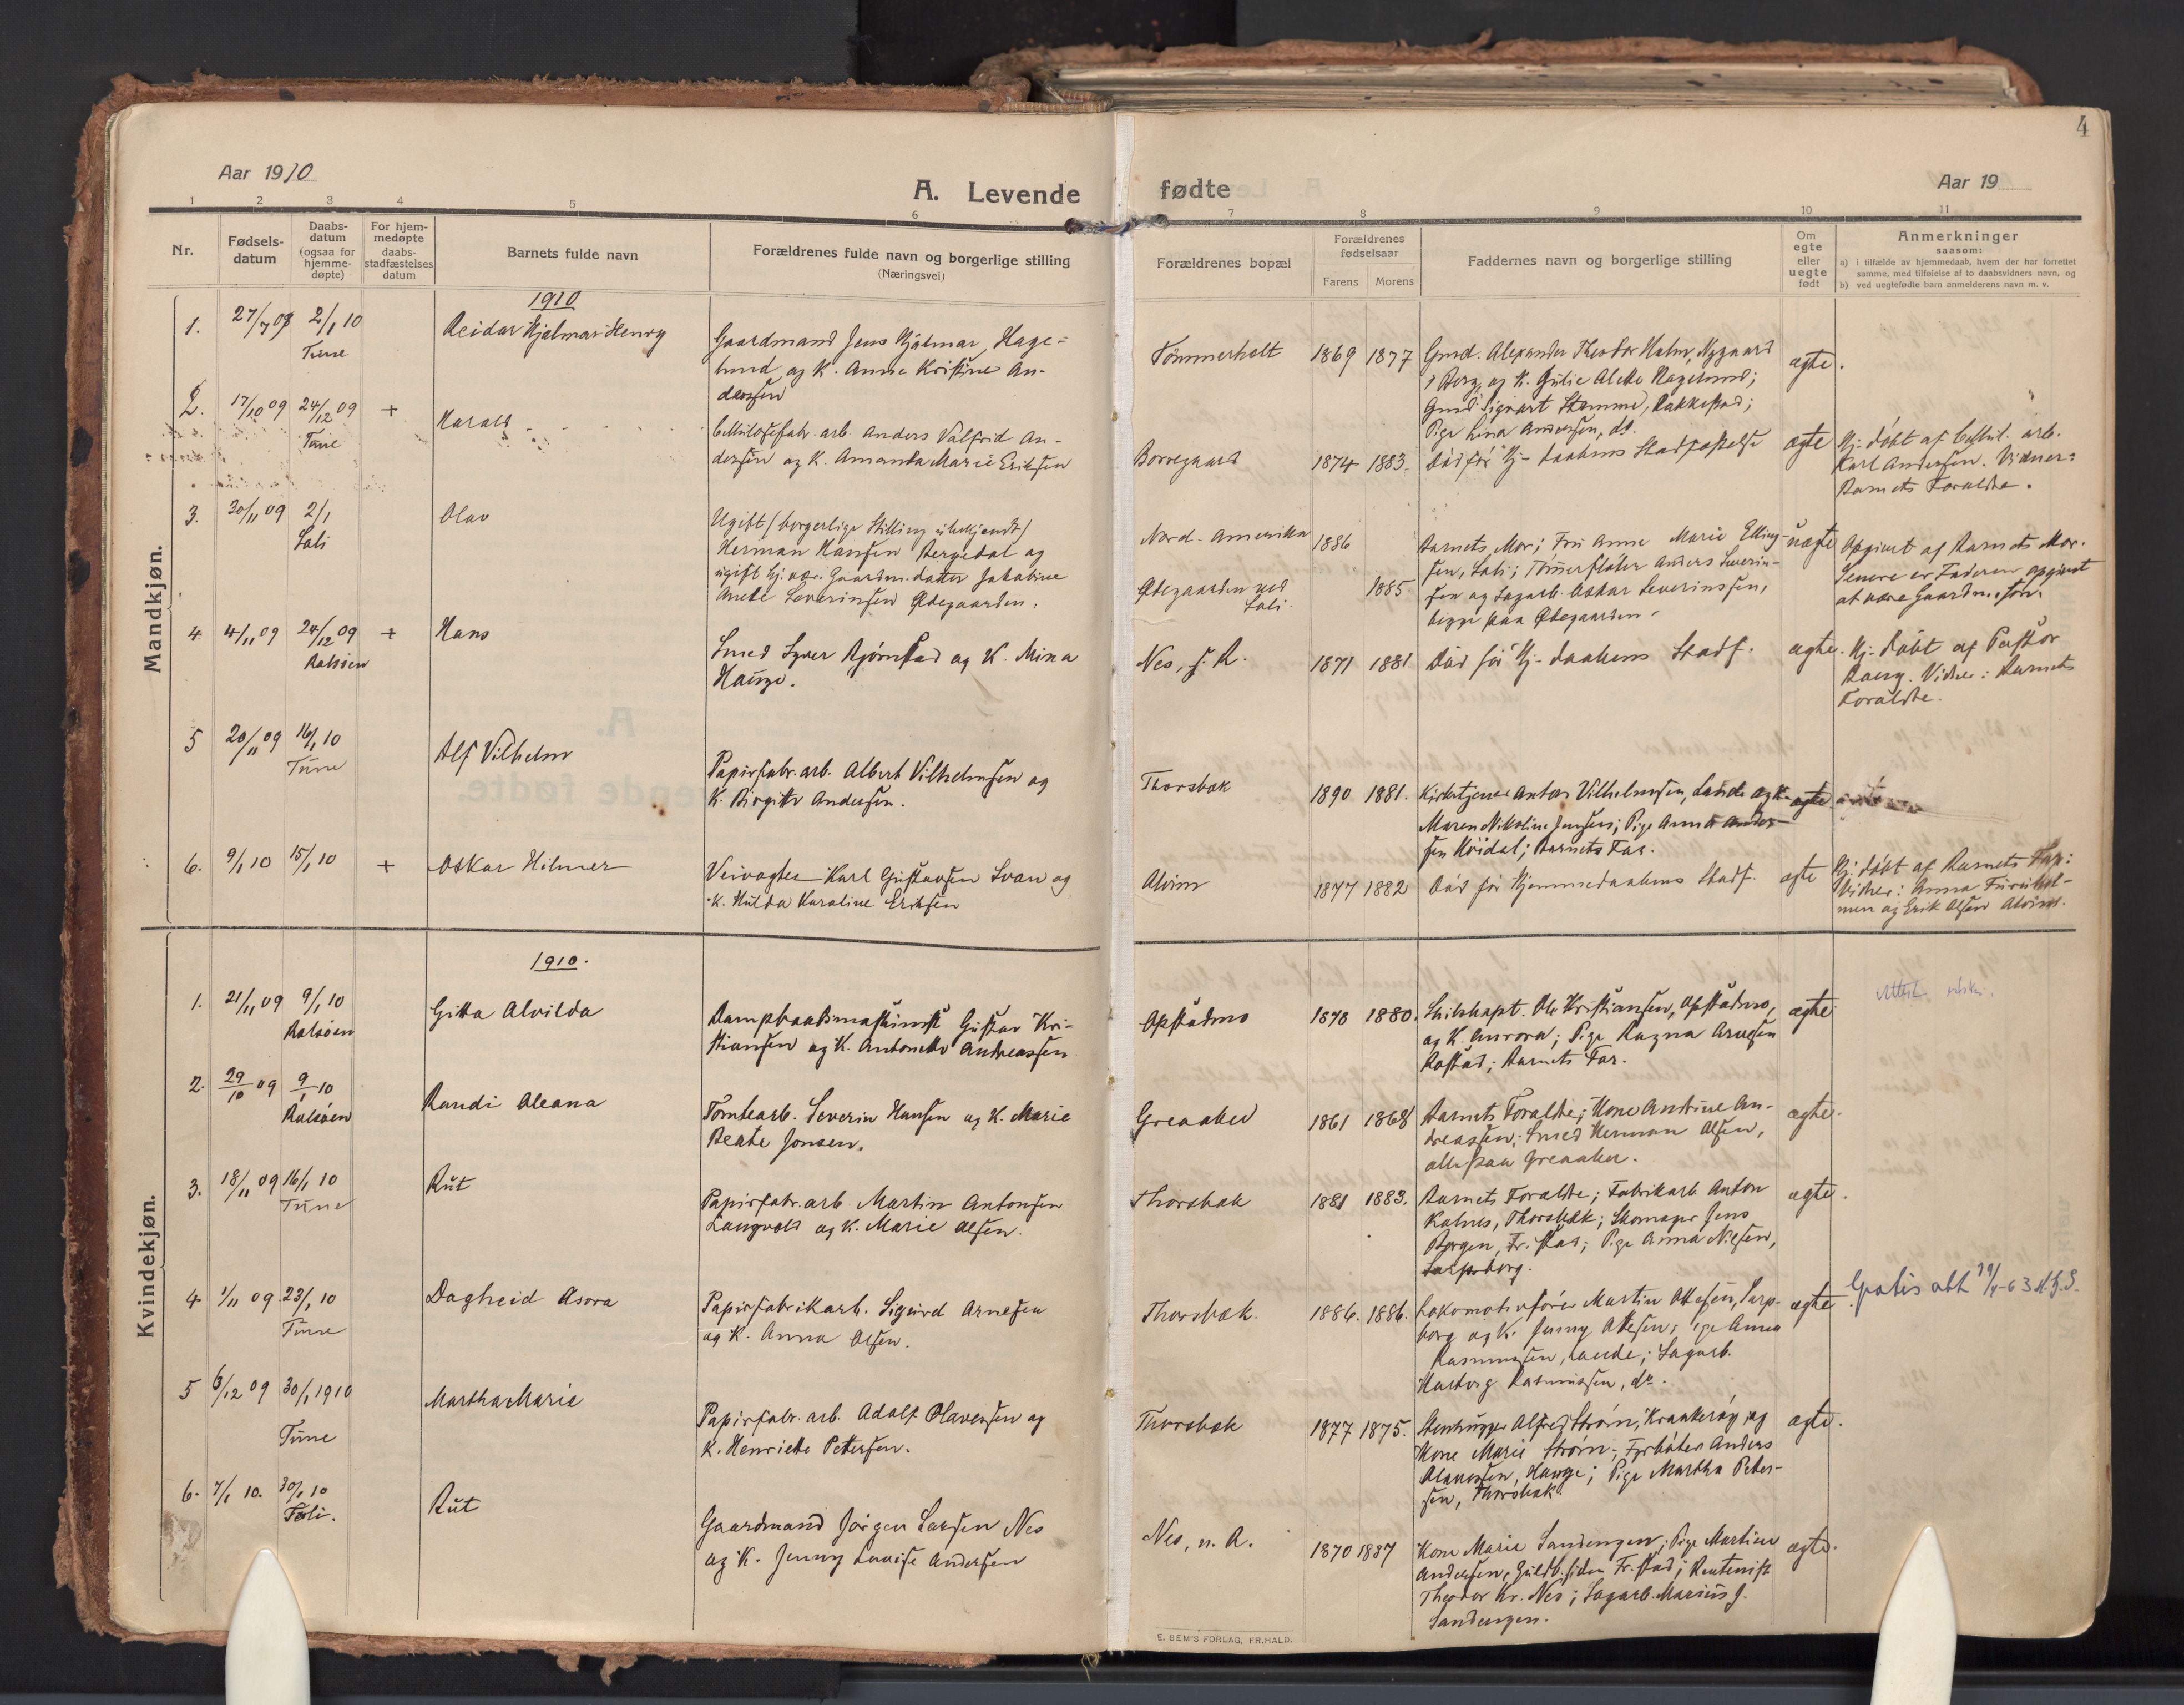 4
Aar 1910
A. Levende
fødte
Aar 19
1 2 3 4 5 6 7 8 9 10 11
Nr.
Fødsels-
datum
Daabs-
datum
(ogsaa for
hjemme-
døpte)
For hjem-
medøpte
daabs-
stadfæstelses
datum
Barnets fulde navn
Forældrenes fulde navn og borgerlige stilling
(Næringsvei)
Forældrenes bopæl
Forældrenes
fødselsaar
Farens Morens
Faddernes navn og borgerlige stilling
Om
egte
eller
uegte
født
Anmerkninger
saasom:
a) i tilfælde av hjemmedaab, hvem der har forrettet
samme, med tilføielse af to daabsvidners navn, og
b) ved uegtefødte barn anmelderens navn m. v.
Mandkjøn.
1910
1. 27/7 09 2/1 10
Tune
Reidar Hjalmar Henry
Gaardmand Jens Hjalmar Hage-
lund og K. Anne Kristine An-
dersen
Tømmerholt 1869 1877
Gmd. Alexander Theodor Holm, Nygaard
i Berg, og K. Gulie Alette Hagelund;
Gmd. Sigvart Stemme, Rakkestad;
Pige Lina Andersen, ds.
ægte.
2. 17/10 09 24/12 09 +
Tune
Harald
Cellulosefabr. arb. Anders Valfrid An-
dersen og K. Amanda Marie Eriksen
Borregaard 1874 1883.
Død før Hj-daabens Stadfæstelse
ægte
Hj. døbt af Cellul. arb.
Karl Andersen. Vidner:
Barnets Forældre.
3. 30/11 09 2/1
Soli
Olav
Ugift (borgerlige Stilling ubekjendt)
Herman Hansen Bergedal og
ugift Hj. vær. Gaardm. datter Jakobine
Anette Severinsen Ødegaarden.
Nord-Amerika 1886
Ødegaarden ved
Soli. 1885.
Barnets Mor; Fru Anne Marie Elling-
sen, Soli; Tømmerfløter Anders Severin-
sen og Sagarb. Oskar Severinssen,
begge paa Ødegaarden.
uægte
Opgivet af Barnets Mor.
Senere er Faderen opgivet
at være Gaardm. søn.
4 4/11 09 24/12 09 +
Rolsøen
Hans
Smed Syver Bjørnstad og K. Mina
Hauge.
Nes, s. R. 1871 1881.
Død før Hj-daabens Stadf.
ægte.
Hj. døbt af Pastor
Barnets
Forældre.
5 20/11 09 16/1 10
Tune
Alf Vilhelm
Papirfabr. arb. Albert Vilhelmsen og
K. Birgitte Andersen.
Thorsbæk 1890 1881.
Kirketjener Anton Vilhelmsen, Lande og K.
Maren Nikoline Jensen; Pige Anna Ander-
sen Hvidal; Barnets Far.
ægte
6. 9/1 10 15/1 10 +
Oskar Hilmer
Veivogter Karl Gustavsen Svan og
K. Hulda Karoline Eriksen
Alvim 1877 1882
Død før Hjemmedaabens Stadf.
ægte
Hj. døbt af Barnets Far:
Vidner: Anna Furuhol-
men og Erik Olsen Alvim.
Kvindekjøn.
1910.
1. 21/11 09 9/1 10
Rolsøen
Gitta Alvilda
Dampbaadsmaskinist Gustav Kri-
stiansen og K. Antonette Andreassen
Opstadmo 1878 1880.
Skibskapt. Ole Kristiansen, Opstadmo,
og K. Aurora; Pige Ragna Arnesen
Rostad; Barnets Far.
ægte
2. 29/10 09 9/1 10
Rolsøen
Randi Oleana
Tomtearb. Severin Hansen og K. Marie
Beate Jonsen.
Greaaker 1861 1868
Barnets Forældre; Kone Andrine An-
dreassen; Smed Herman Olsen,
alle paa Greaaker.
ægte.
3. 18/11 09 16/1 10
Tune
Rut
Papirfabr. arb. Martin Antonsen
Langvold og K. Marie Olsen.
Thorsbæk 1881 1883.
Barnets Forældre; Fabrikarb. Anton
Kalnes, Thorsbæk; Skomager Jens
Borgen, Fr. stad; Pige Anna Nilsen,
Sarpsborg.
ægte.
4 1/11 09 23/1 10
Tune
Dagheid Asora
Papirfabrikarb. Sigurd Arnesen
og K. Anna Olsen.
Thorsbæk. 1886. 1886.
Lokomotivfører Martin Ottesen, Sarp-
borg og K. Jenny Ottesen; Pige Anna
Rasmussen, Lande; Sagarb.
Rasmussen, do.
ægte
Gratis att 1963
5 6/12 09 30/1 1910
Tune
Martha Marie
Papirfabr. arb. Adolf Olavesen og
K. Henriette Pettersen.
Thorsbæk 1877 1875.
Stenhugger Alfred Strøm, Kraakerøy og
Kone Marie Strøm; Fyrbøter Anders
Olavesen, Hauge; Pige Martha Peter-
sen, Thorsbæk.
ægte.
6. 7/1 10. 30/1 10
Soli.
Rut
Gaardmand Jørgen Larsen Nes
og K. Jenny Lovise Andersen
Nes, n. R. 1870 1887
Kone Marie Sandengen; Pige Martine
Andersen, Fr. stad; Rentenist
Theodor Kr. Nes; Sagarb. Marius J.
Sandengen.
ægte.
E. SEM'S FORLAG, FR.HALD.